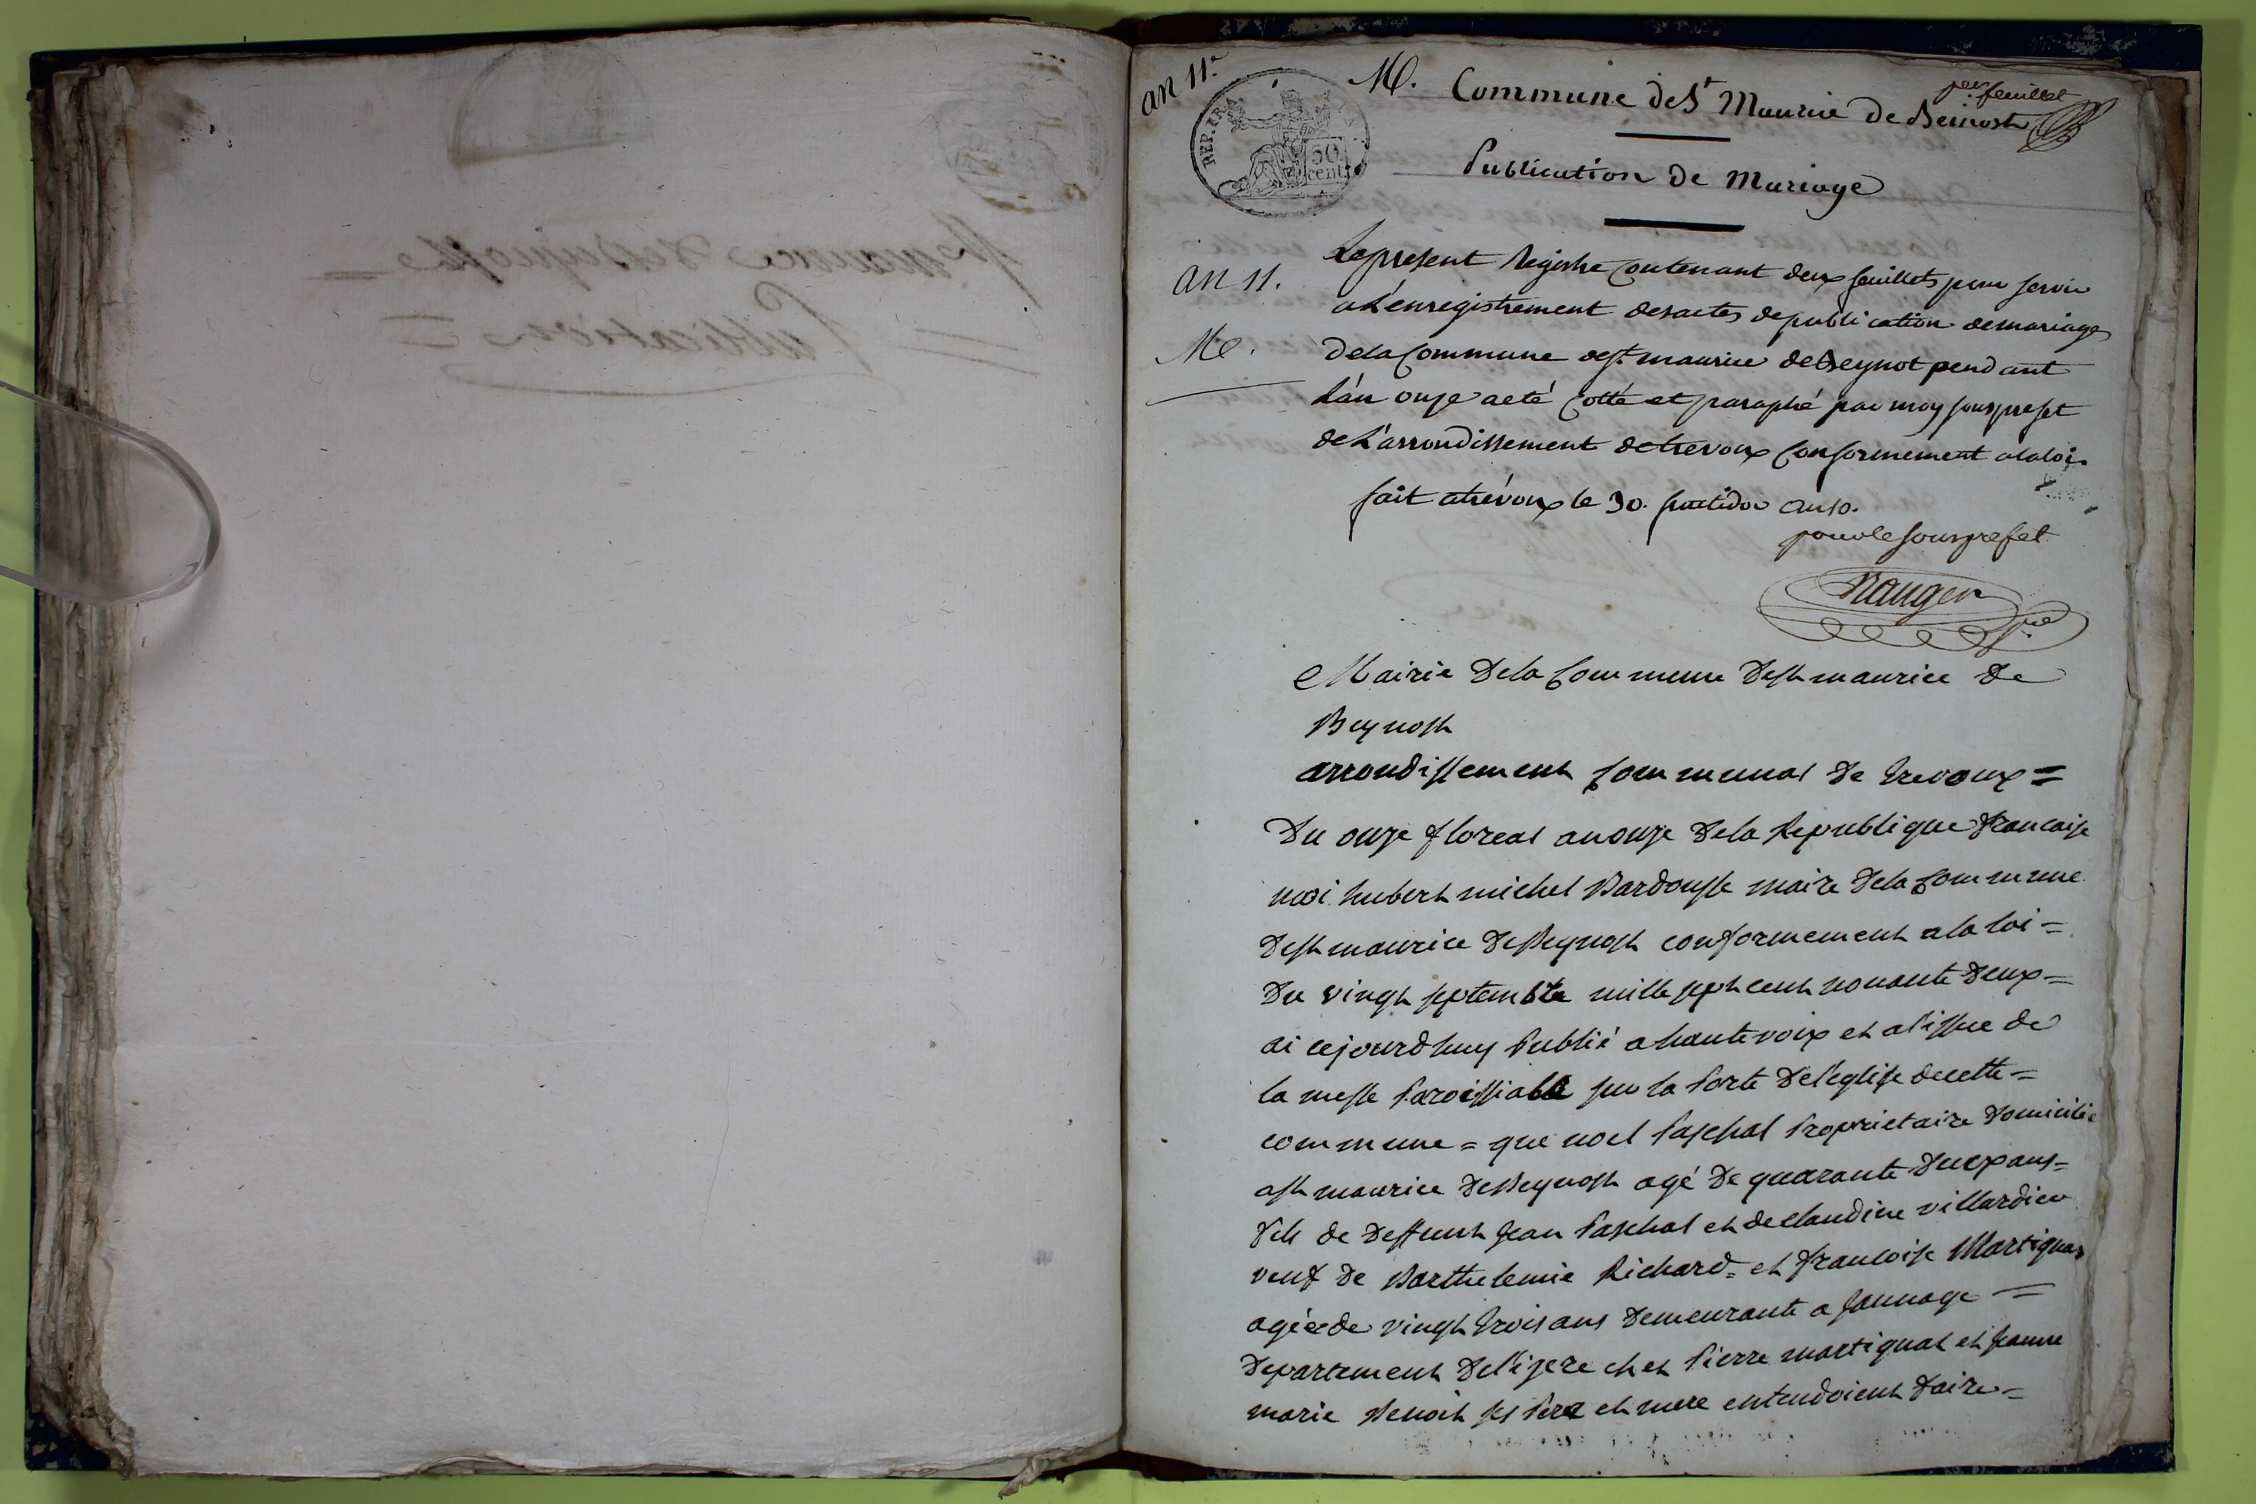 an 11.e
M. Commune de St Maurice de Beinost
per feuillet
REP. FRA
50
cent.
Publication de Mariage
an 11.
M.
Le present Registre Contenant deux feuillets pour servir
a L'enregistrement des actes de publication de mariages
de la Commune de st. maurice de Beynot pendant
L'an onze a eté Cotté et paraphé par moy sousprefet
de L'arrondissement de trevoux Conformement a la loi
fait a trévoux le 30. fructidor an 10.
pour le sousprefet
Mairie de la Commune de st maurice de
Beynost
arrondissement Communal de trevoux =
Du onze floreal an onze de la Republique francaise
moi hubert michel Bardousse maire de la Commune
de st maurice de Beynost conformement a la loi =
du vingt septembre mille sept cent nonante deux =
ai cejourdhuy Publié a haute voix et a l'issue de
la messe Paroissiale sur la Porte de l'église de cette =
commune = que noel Paschal Proprietaire domicilié
a st maurice de Beynost agé de quarante deux ans =
fils de deffunt Jean Paschal et de claudine villardieu
veuf de Barthelemie Richard = et francoise Martignat
agée de vingt trois ans demeurante a Jannage =
departement de l'izere chez Pierre martignat et Jeanne
marie Benoit ses Pere et mere entendoient faire =